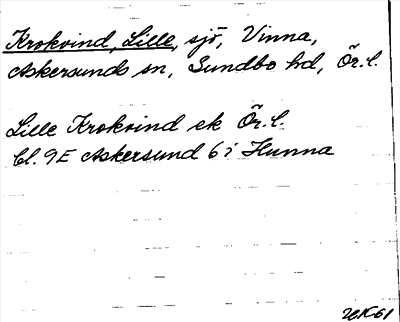 Krokvind, Lille, sjö, Vinna,
Askersunds sn, Sundbo hd, Ör. l.
Lille Krokvind ek Ör. l.
Bl. 9E Askersund 6i Hunna